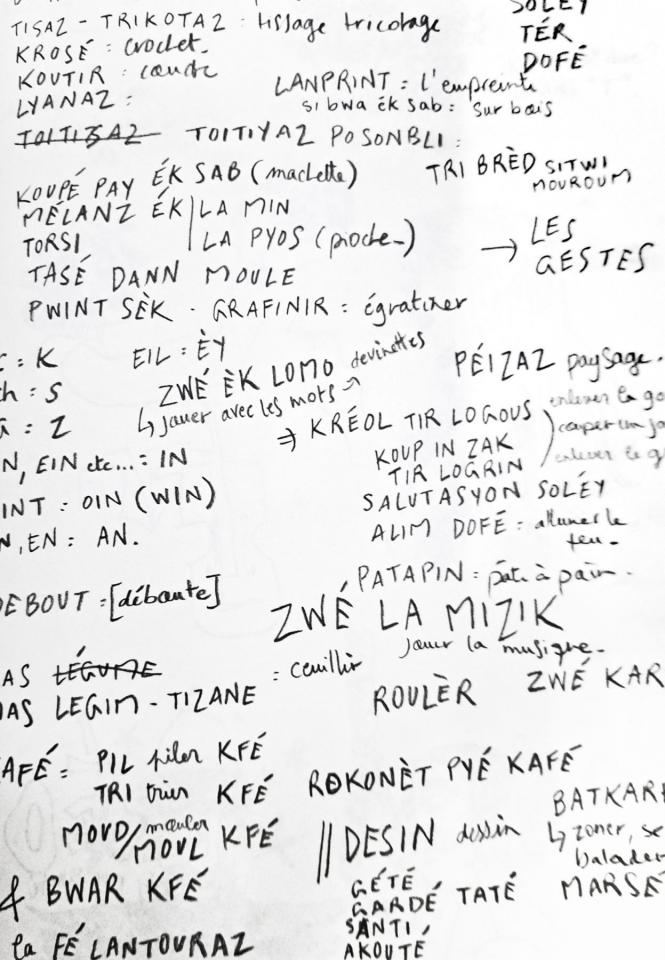 TISAZ - TRIKOTAZ : tissage tricotage
KROSÉ : crochet.
KOUTIR : coudre
LYANAZ :
TOITIYAZ POSONBLI :
SOLEY
TÉR
DOFÉ
LANPRINT : l'empreinte
si bwa ék sab : sur bois
KOUPÉ PAY ÉK SAB (machette)
MÉLANZ ÉK | LA MIN
TORSI | LA PYOS (pioche-)
TASÉ DANN MOULE
PWINT SÈK - GRAFINIR : égratiner
TRI BRÈD SITWI
MOUROUM
→ LES
GESTES
: K
ch : S
: Z
N, EIN etc... : IN
INT : OIN (WIN)
N, EN : AN.
EIL : ÈY
ZWÉ ÈK LOMO devinettes
↳ jouer avec les mots
PÉIZAZ paysage.
⇒ KRÉOL TIR LOGOUS enlever le
KOUP IN ZAK couper un
TIR LOGRIN enlever le
SALUTASYON SOLÉY
ALIM DOFÉ : allumer le
feu-
PATAPIN : pâte à pain.
DEBOUT : [déboute]
ZWÉ LA MIZIK
jouer la musique.
AS LÉGUME
: ceuillir
AS LEGIM - TIZANE
ROULÈR ZWÉ KAR
KAFÉ : PIL piler KFÉ
TRI trier KFÉ
MOUD/MOUL mouler KFÉ
& BWAR KFÉ
la FÉ LANTOURAZ
ROKONÈT PYÉ KAFÉ
|| DESIN dessin
GÉTÉ
GARDÉ TATÉ
SANTI
AKOUTÉ
BATKAR
↳ zoner, se
balader
MARSÉ